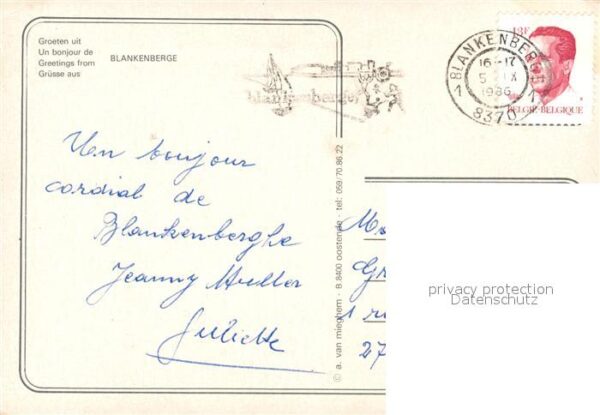 Groeten uit
Un bonjour de
Greetings from
Grüsse aus
BLANKENBERGE
13F
BELGIE-BELGIQUE
BLANKENBERGE
16-17
5 IX
1986
1 1
8370
blankenberge
Un bonjour
cordial de
Blankenberghe
Jeanny Muller
Juliette
© a. van mieghem - B 8400 oostende - tel: 059/70.86.22
Gr
1 ru
27
privacy protection
Datenschutz